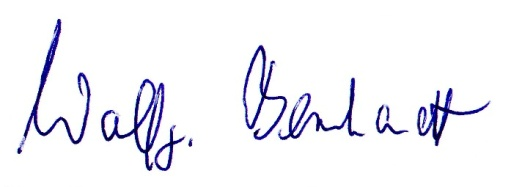 Wolfg. Bernhardt